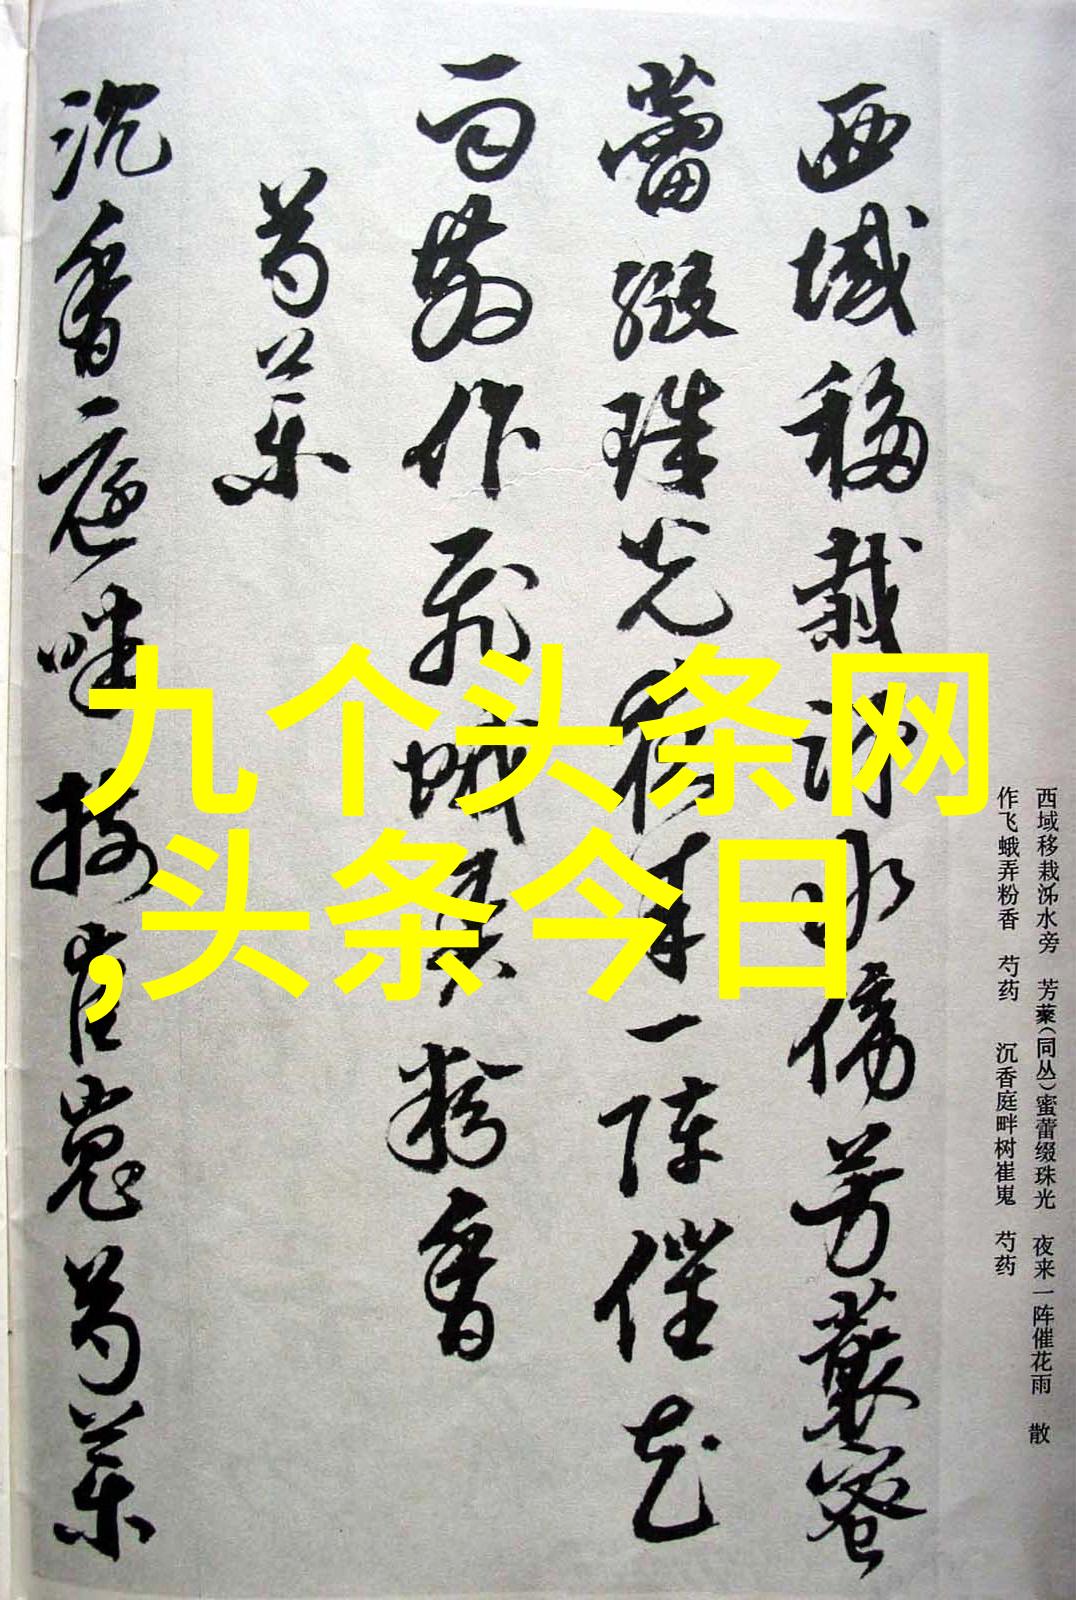 西域移栽沵水傍芳藂蜜
蕾缀珠光夜来一阵催花
雨散作飞蛾弄粉香
芍药
沉香庭畔树崔嵬芍药
九个头条网
,头条今日
西域移栽沵水旁　芳藂(同丛)蜜蕾缀珠光　夜来一阵催花雨　散
作飞蛾弄粉香　芍药　沉香庭畔树崔嵬　芍药